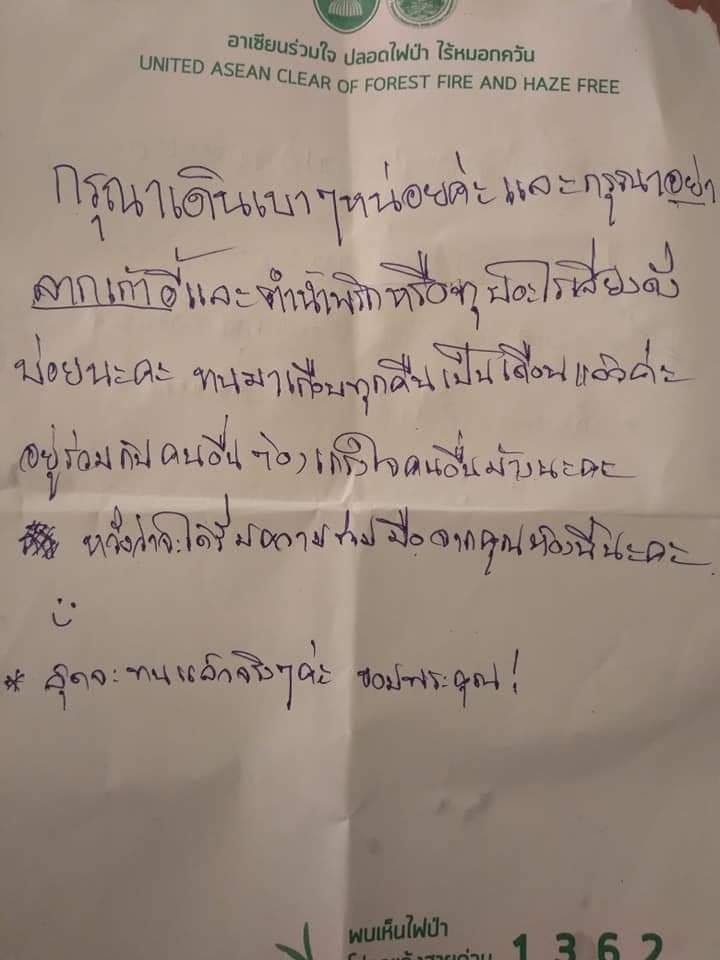 อาเซียนร่วมใจ ปลอดไฟป่า ไร้หมอกควัน
UNITED ASEAN CLEAR OF FOREST FIRE AND HAZE FREE
กรุณาเดินเบาๆหน่อยค่ะ และกรุณาอย่า
ลากเก้าอี้และตำน้ำพริกหรือทุบอะไรเสียงดัง
บ่อยนะคะ ทนมาเกือบทุกคืนเป็นเดือนแล้วค่ะ
อยู่ร่วมกับคนอื่นต้องเกรงใจคนอื่นบ้างนะคะ
หวังว่าจะได้รับความร่วมมือจากคุณห้องนี้นะคะ
* สุดจะทนแล้วจริงๆค่ะ ขอบพระคุณ!
พบเห็นไฟป่า
1362